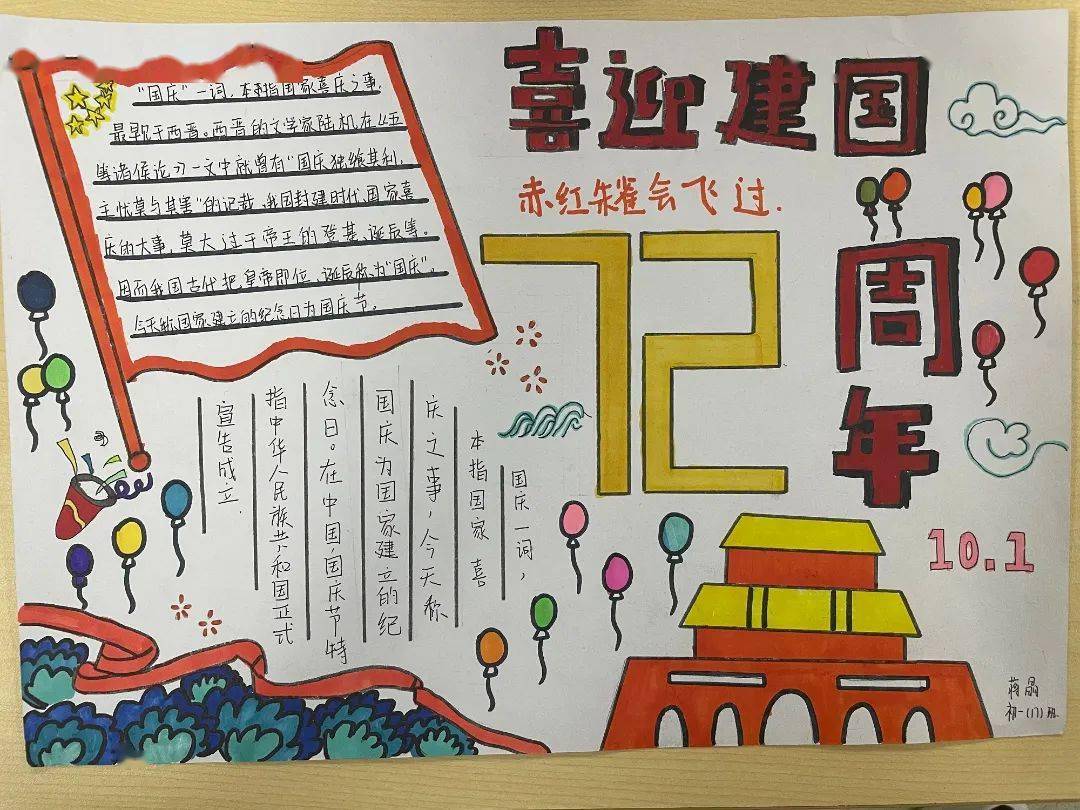 喜迎建国
赤红朱雀会飞过.
72
周年
10.1
“国庆”一词,本指国家喜庆之事,
最早见于西晋。西晋的文学家陆机在《五
等诸侯论》一文中就曾有“国庆独飨其利,
主忧莫与其害”的记载、我国封建时代、国家喜
庆的大事,莫大过于帝王的登基、诞辰等。
因而我国古代把皇帝即位、诞辰称为“国庆”。
今天称国家建立的纪念日为国庆节。
国庆一词,
本指国家喜
庆之事,今天称
国庆为国家建立的纪
念日。在中国,国庆节特
指中华人民族共和国正式
宣告成立.
蒋晶
初一(17)班.